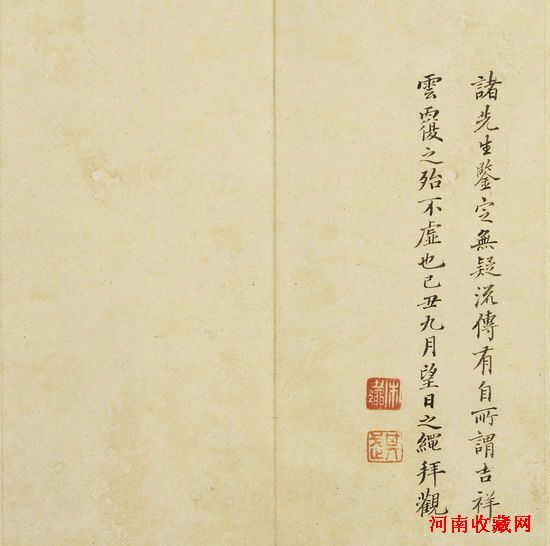 諸先生鑒定無疑流傳有自所謂吉祥
雲覆之殆不虛也己丑九月望日之繩拜觀
河南收藏网